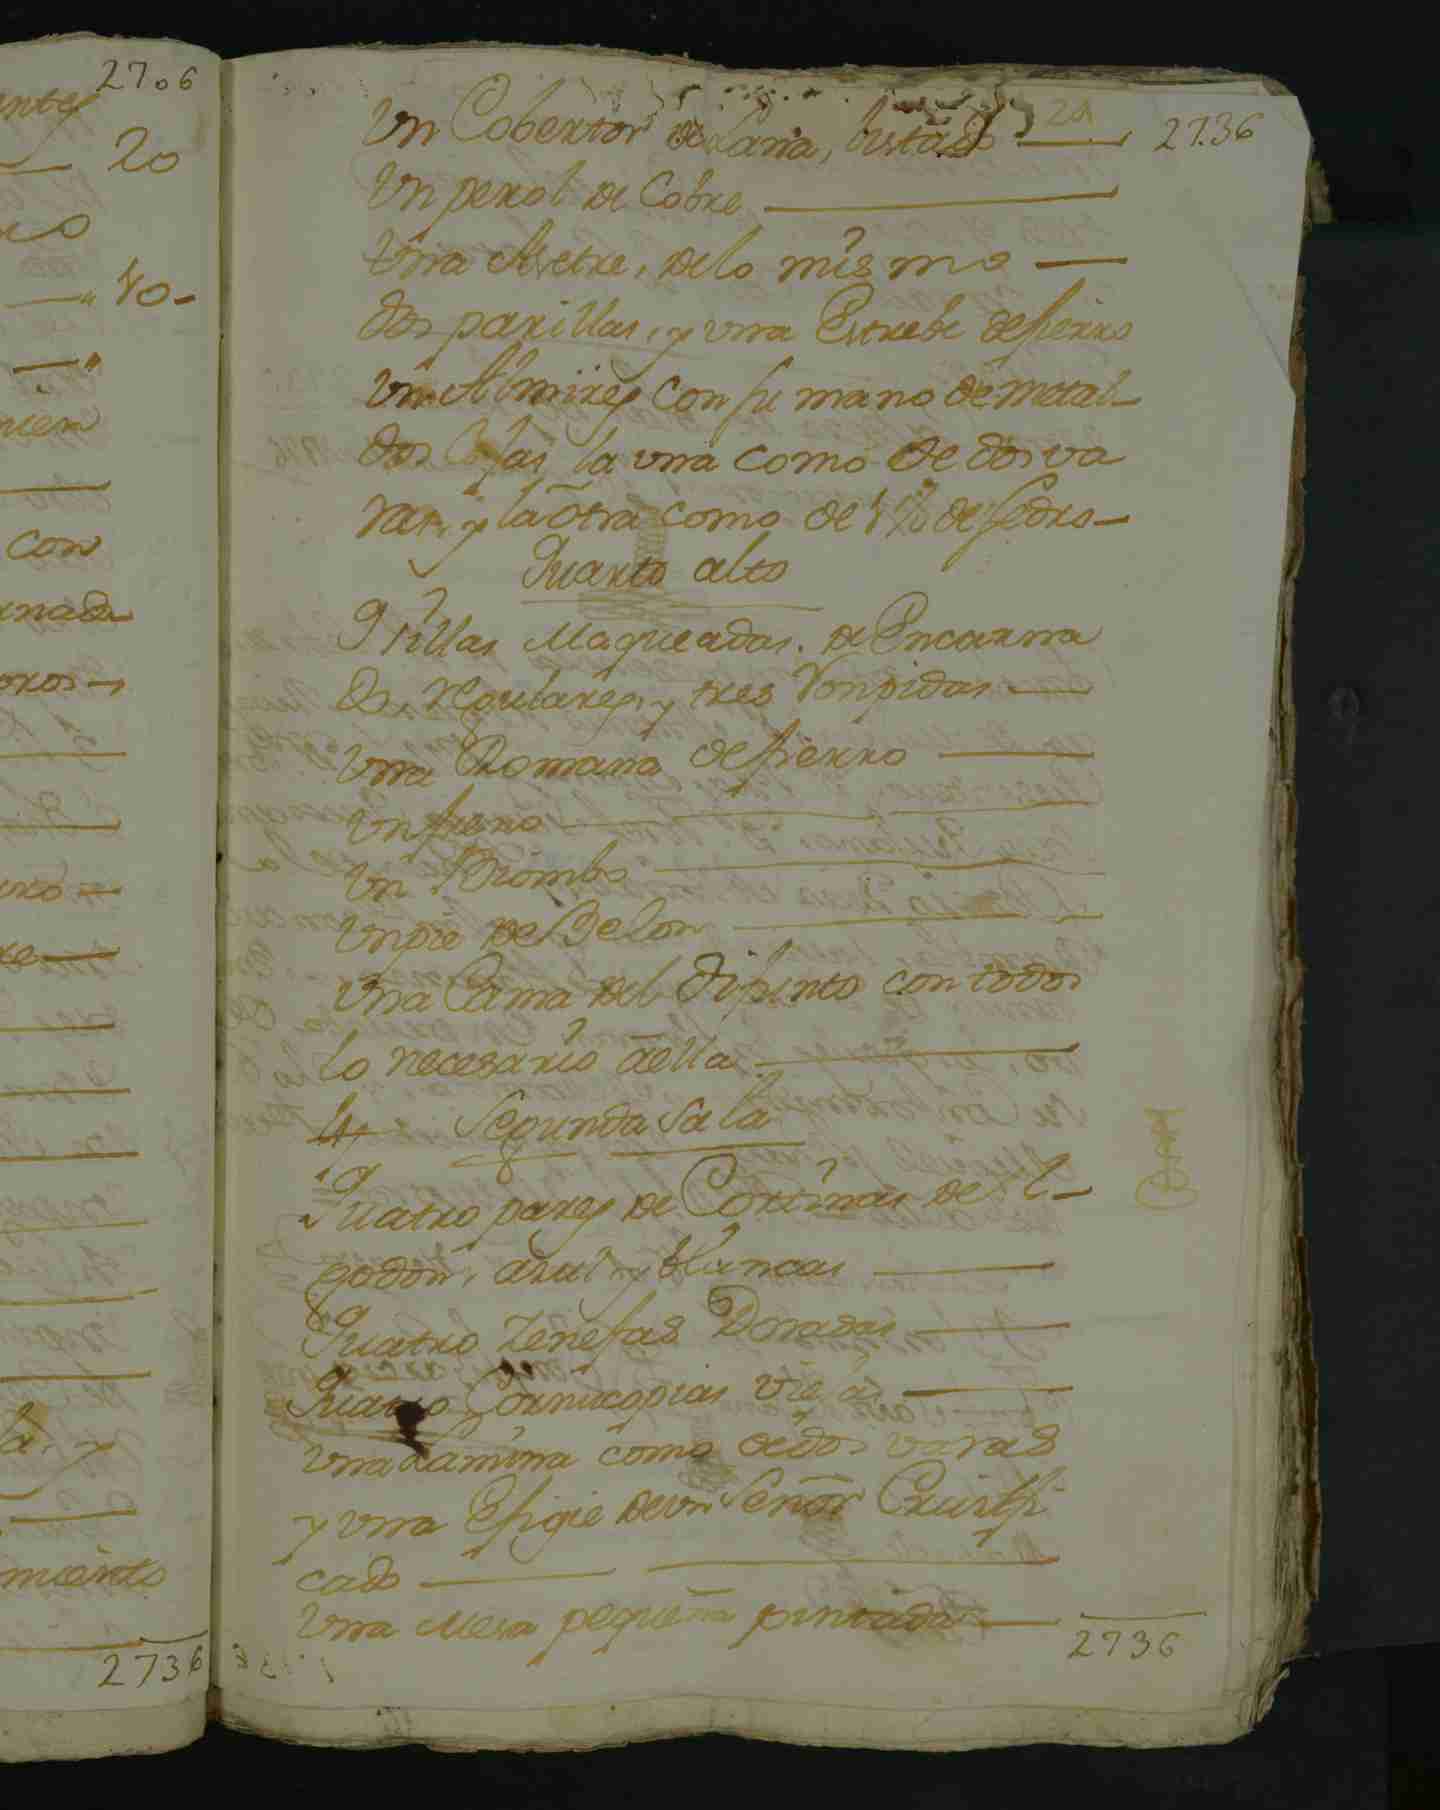 2706
20
10-
con
nada
miento
2736
24
2736
Un Cobertor de Lana, listado
Un perol de Cobre
Una Asetre, de lo mismo
dos parillas, y una Estrebe de fierro
Un Almires con su mano de metal
dos Cajas la una como de dos va
ras, y la otra como de 1 1/2 de sedro
Quarto alto
9 sillas Maqueadas. de Encarna
do, regulares, y tres Rompidas
Una Romana de fierro
Un freno
Un Biombo
Un pie de Belon
Una Cama del difunto con todos
lo necesario a ella
Segunda Sala
Quatro pares de Cortinas de l
godon, azul y blancas
Quatro Zenefas Doradas
Quatro Cornucopias
Una Lamina como de dos varas
y una Efigie de un Señor Crusifi
cado
Una Mesa pequeña pintada
2736